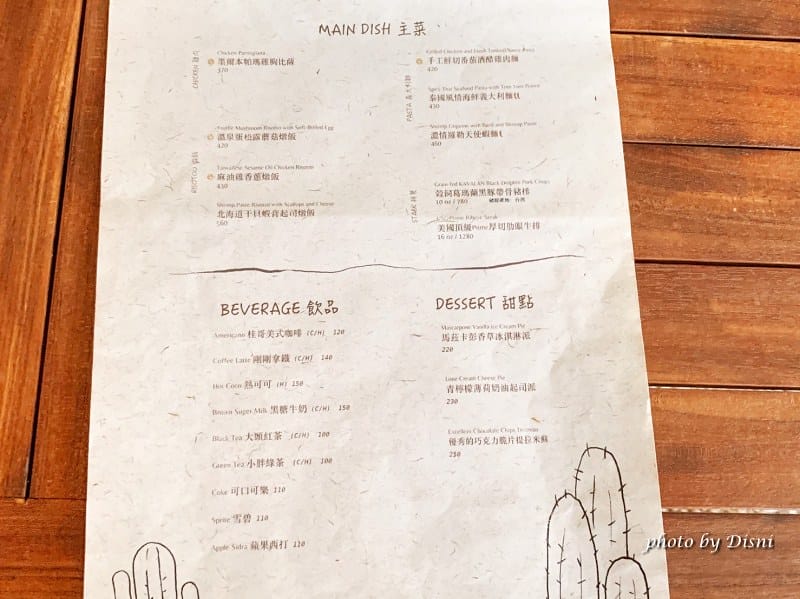 MAIN DISH 主菜
CHICKEN 雞肉
Chicken Parmigiana
墨爾本帕瑪雞胸比薩
370
RISOTTO 燉飯
Truffle Mushroom Risotto with Soft-Boiled Egg
溫泉蛋松露蘑菇燉飯
420
Taiwanese Sesame Oil Chicken Risotto
麻油雞香蕈燉飯
430
Shrimp Paste Risotto with Scallops and Cheese
北海道干貝蝦膏起司燉飯
560
PASTA 義大利麵
Grilled Chicken and Fresh Tomato
手工鮮切番茄酒醋雞肉麵
420
Spicy Thai Seafood Pasta with Tom Yum Paste
泰國風情海鮮義大利麵
450
Shrimp Linguine with Basil and Shrimp Paste
濃情羅勒天使蝦麵
460
STEAK 排餐
Grain-fed KAVALAN Black Pork Chops
穀飼葛瑪蘭黑豚帶骨豬排
10 oz / 780
豬肉產地: 台灣
USG Prime Ribeye Steak
美國頂級Prime厚切肋眼牛排
16 oz / 1280
BEVERAGE 飲品
Americano 桂哥美式咖啡 (C/H) 120
Coffee Latte 剛剛拿鐵 (C/H) 140
Hot Coco 熱可可 (H) 150
Brown Suger Milk 黑糖牛奶 (C/H) 150
Black Tea 大頭紅茶 (C/H) 100
Green Tea 小胖綠茶 (C/H) 100
Coke 可口可樂 110
Sprite 雪碧 110
Apple Sidra 蘋果西打 110
DESSERT 甜點
Mascarpone Vanilla Ice Cream Pie
馬茲卡彭香草冰淇淋派
220
Lime Cream Cheese Pie
青檸檬薄荷奶油起司派
230
Excellent Chocolate Chips Tiramisu
優秀的巧克力脆片提拉米蘇
250
photo by Disni